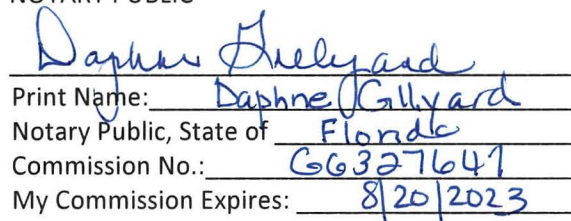 NOTARY PUBLIC
Daphne Gillyard
Print Name: Daphne Gillyard
Notary Public, State of Florida
Commission No.: GG327647
My Commission Expires: 8/20/2023